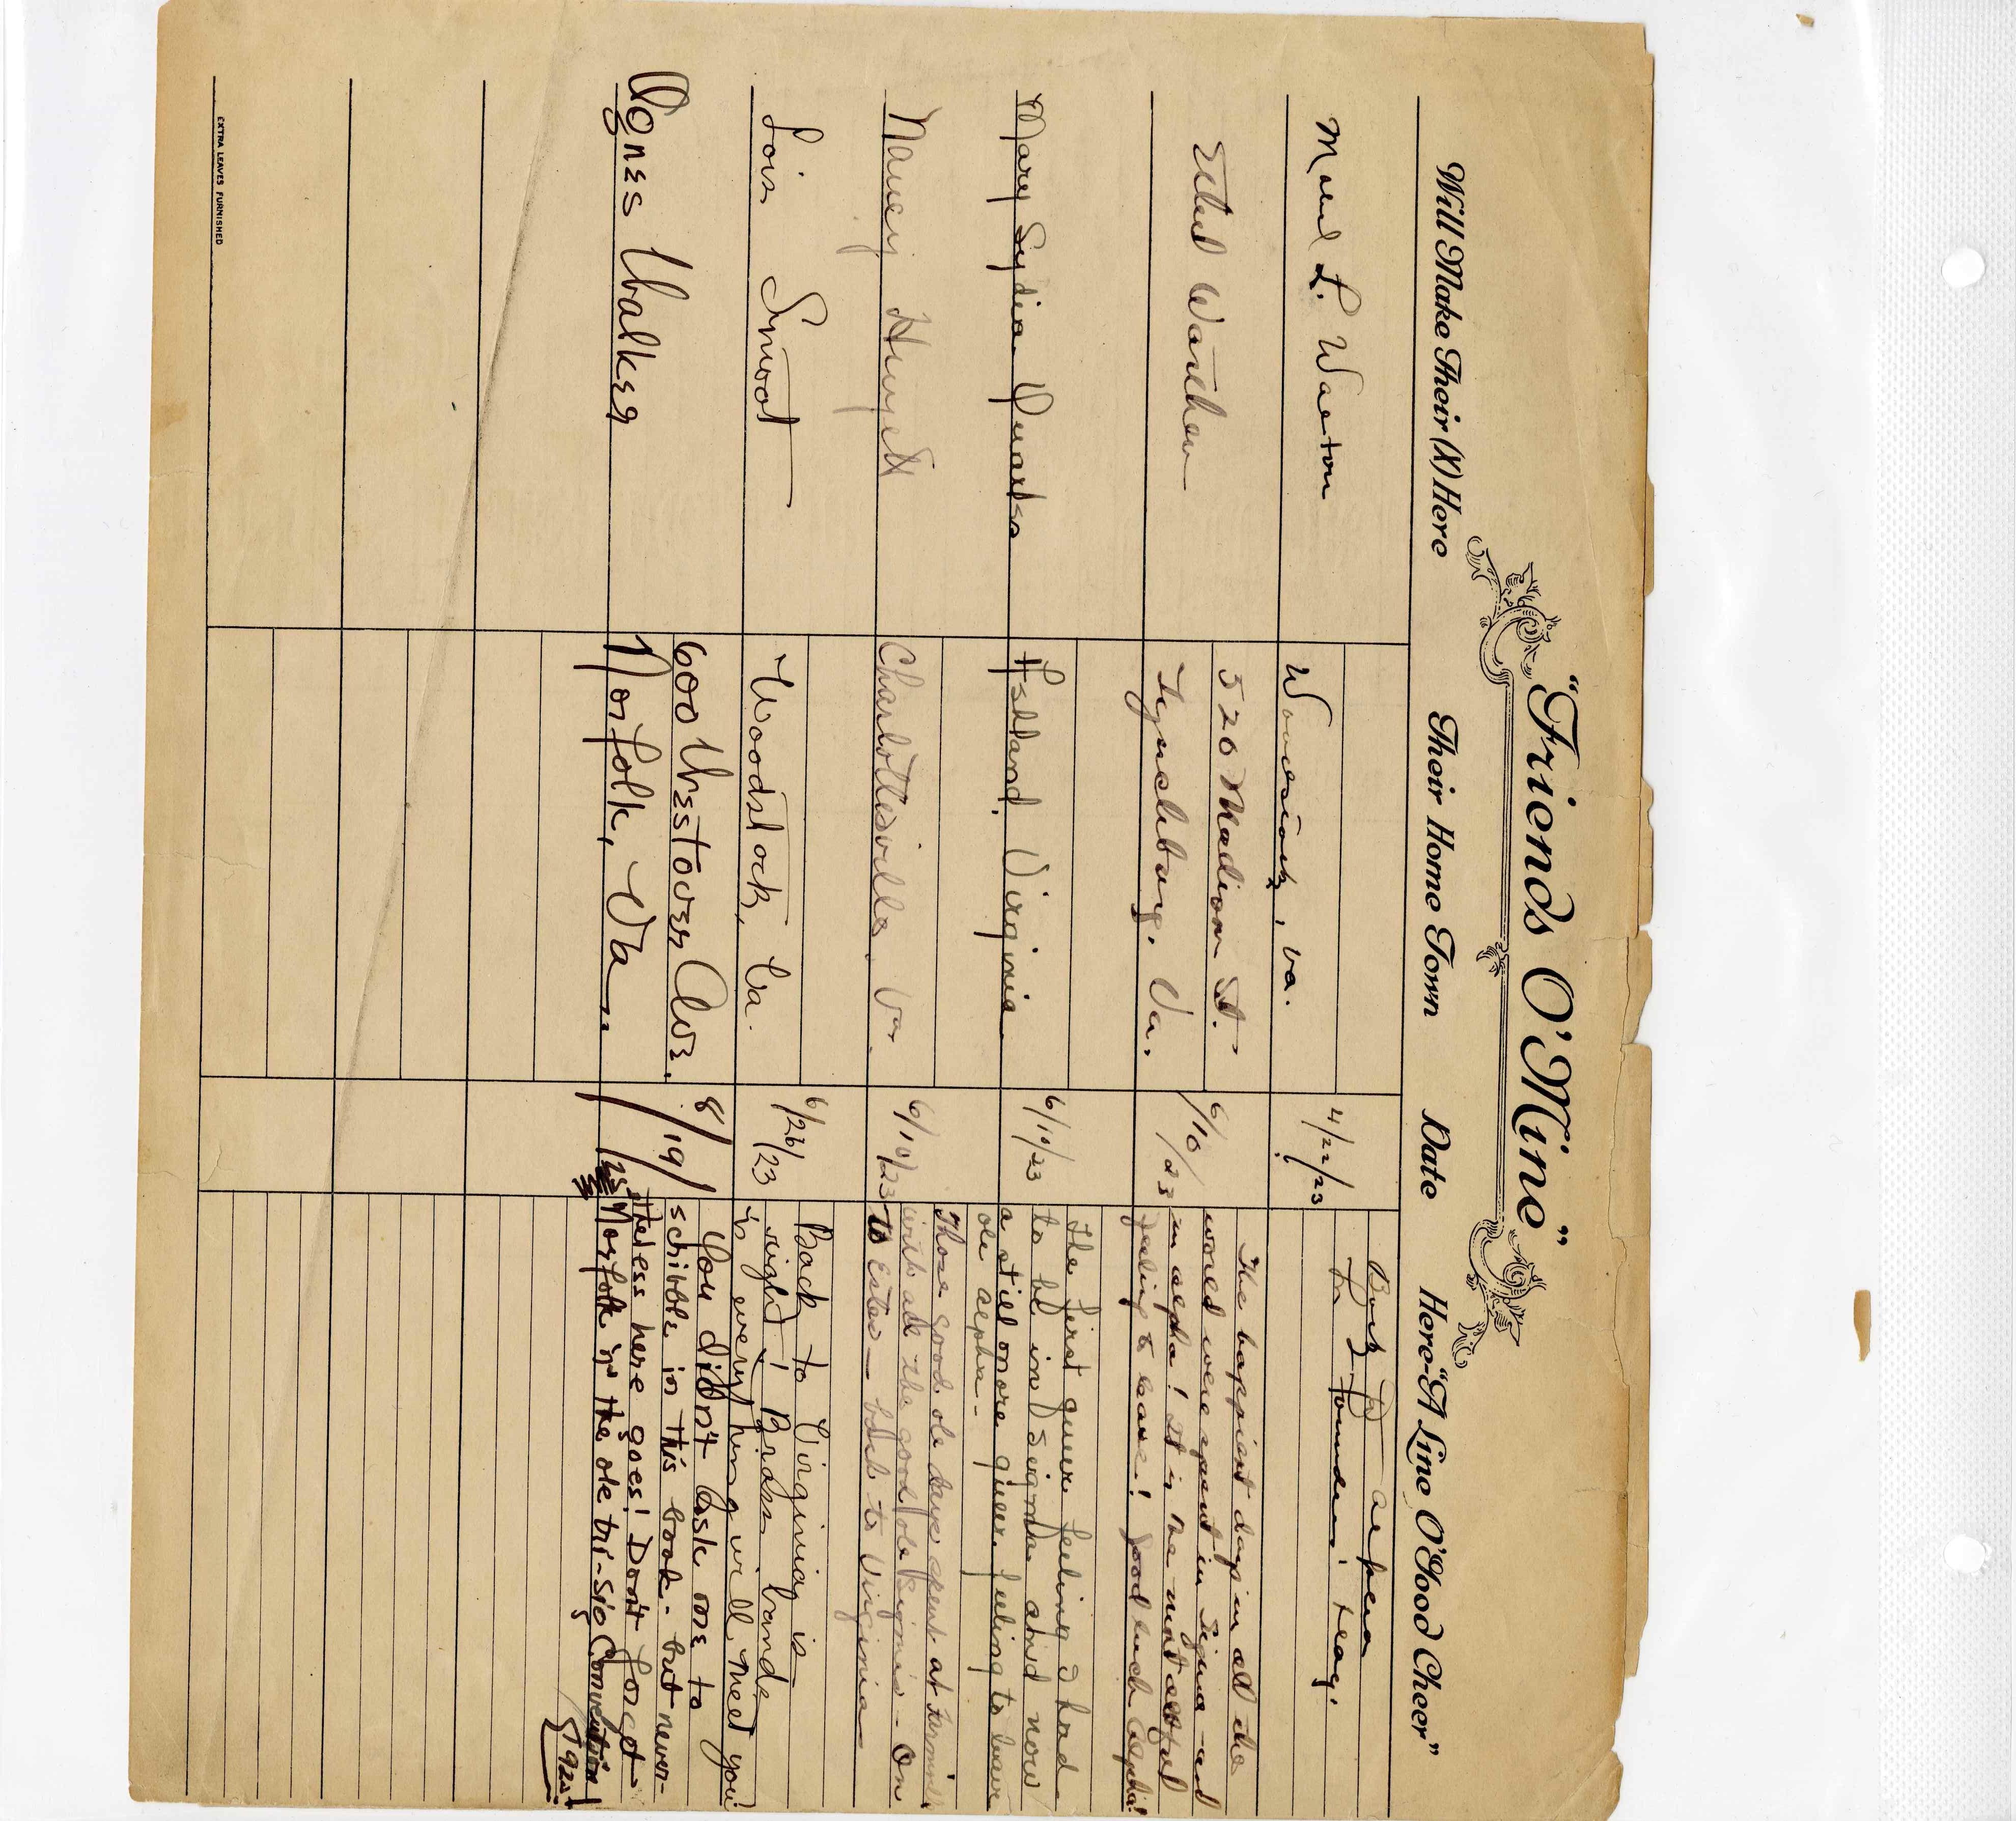 "Friends O'Mine"
Will Make Their (X) Here Their Home Town Date Here "A Line O'Good Cheer"
L. Va. 4/22/23 Back to
for Founders' Day.
Warthen 520 Madison St. 6/10/23 The happiest days in all the
Lynchburg, Va. world were spent in Sigma and
in Alpha! It is the most
feeling to leave! Good luck Alpha!
Mary Lydia Quarles Ashland, Virginia 6/10/23 The first queer feeling I had
to be in Sigma and now
a still more queer feeling to leave
ole Alpha.
Nancy Charlottesville, Va. 6/10/23 Those good ole days spent at
with all the good ole Sigmas - On
to Estes - back to Virginia
Lois Smoot Woodstock, Va. 6/26/23 Back to Virginia is
right! Brass bands
'n everything will meet you!
Agnes Walker 600 Westover Ave. 8/19/23 You didn't ask me to
Norfolk, Va. schibble in this book - but never-
theless here goes! Don't forget
Norfolk 'n the ole tri-Sig Convention!
1925!
EXTRA LEAVES FURNISHED